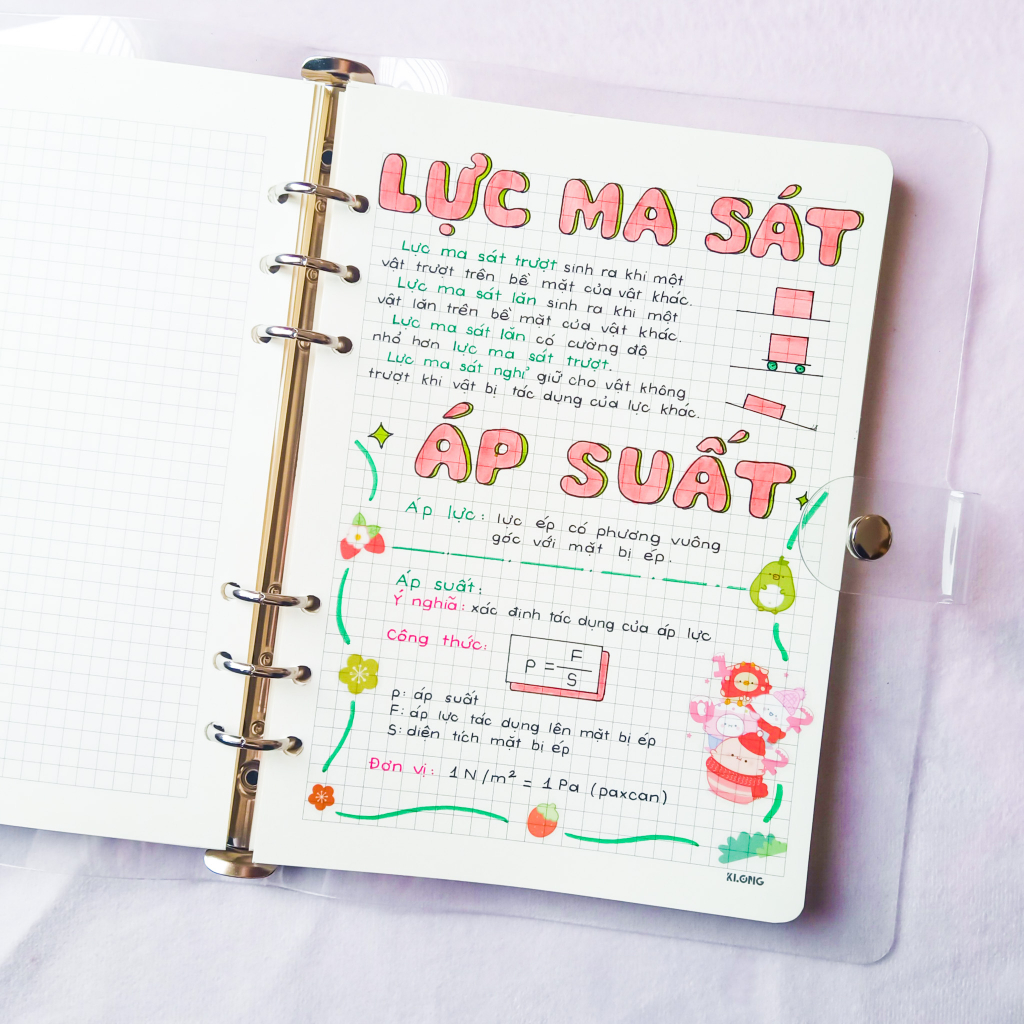 LỰC MA SÁT
Lực ma sát trượt sinh ra khi một
vật trượt trên bề mặt của vật khác.
Lực ma sát lăn sinh ra khi một
vật lăn trên bề mặt của vật khác.
Lực ma sát lăn có cường độ
nhỏ hơn lực ma sát trượt.
Lực ma sát nghỉ giữ cho vật không
trượt khi vật bị tác dụng của lực khác.
ÁP SUẤT
Áp lực: lực ép có phương vuông
góc với mặt bị ép.
Áp suất:
Ý nghĩa: xác định tác dụng của áp lực
Công thức: p = F/S
p: áp suất
F: áp lực tác dụng lên mặt bị ép
S: diện tích mặt bị ép
Đơn vị: 1 N/m² = 1 Pa (paxcan)
KLONG